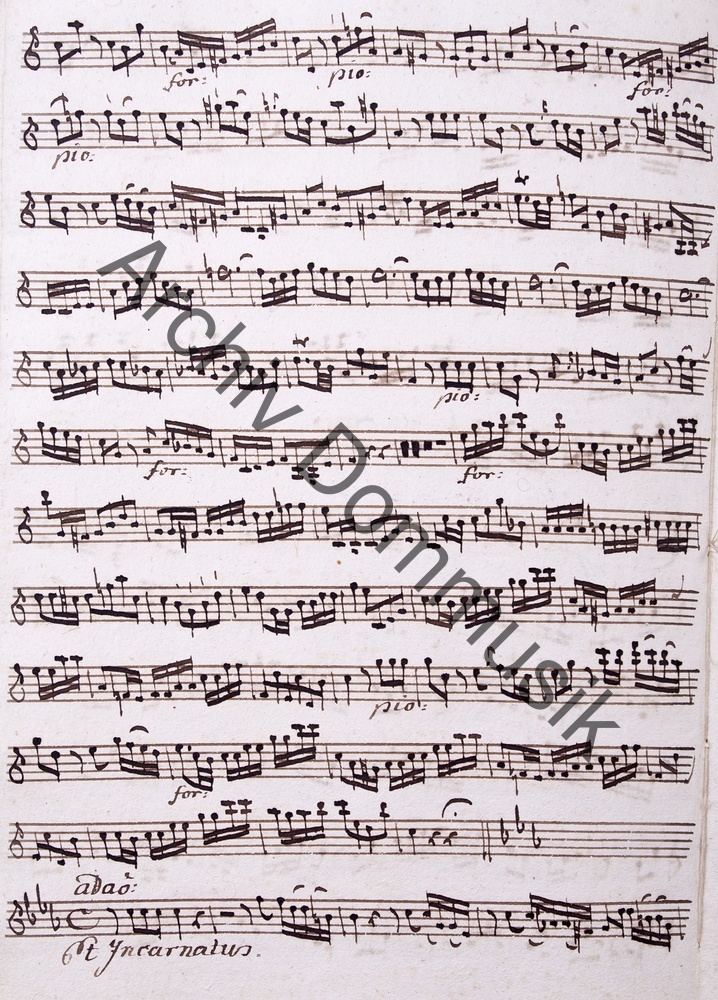 for: pio: for:
pio:
pio:
for: for:
pio:
for:
adaõ:
Et Jncarnatus.
Archiv Dommusik